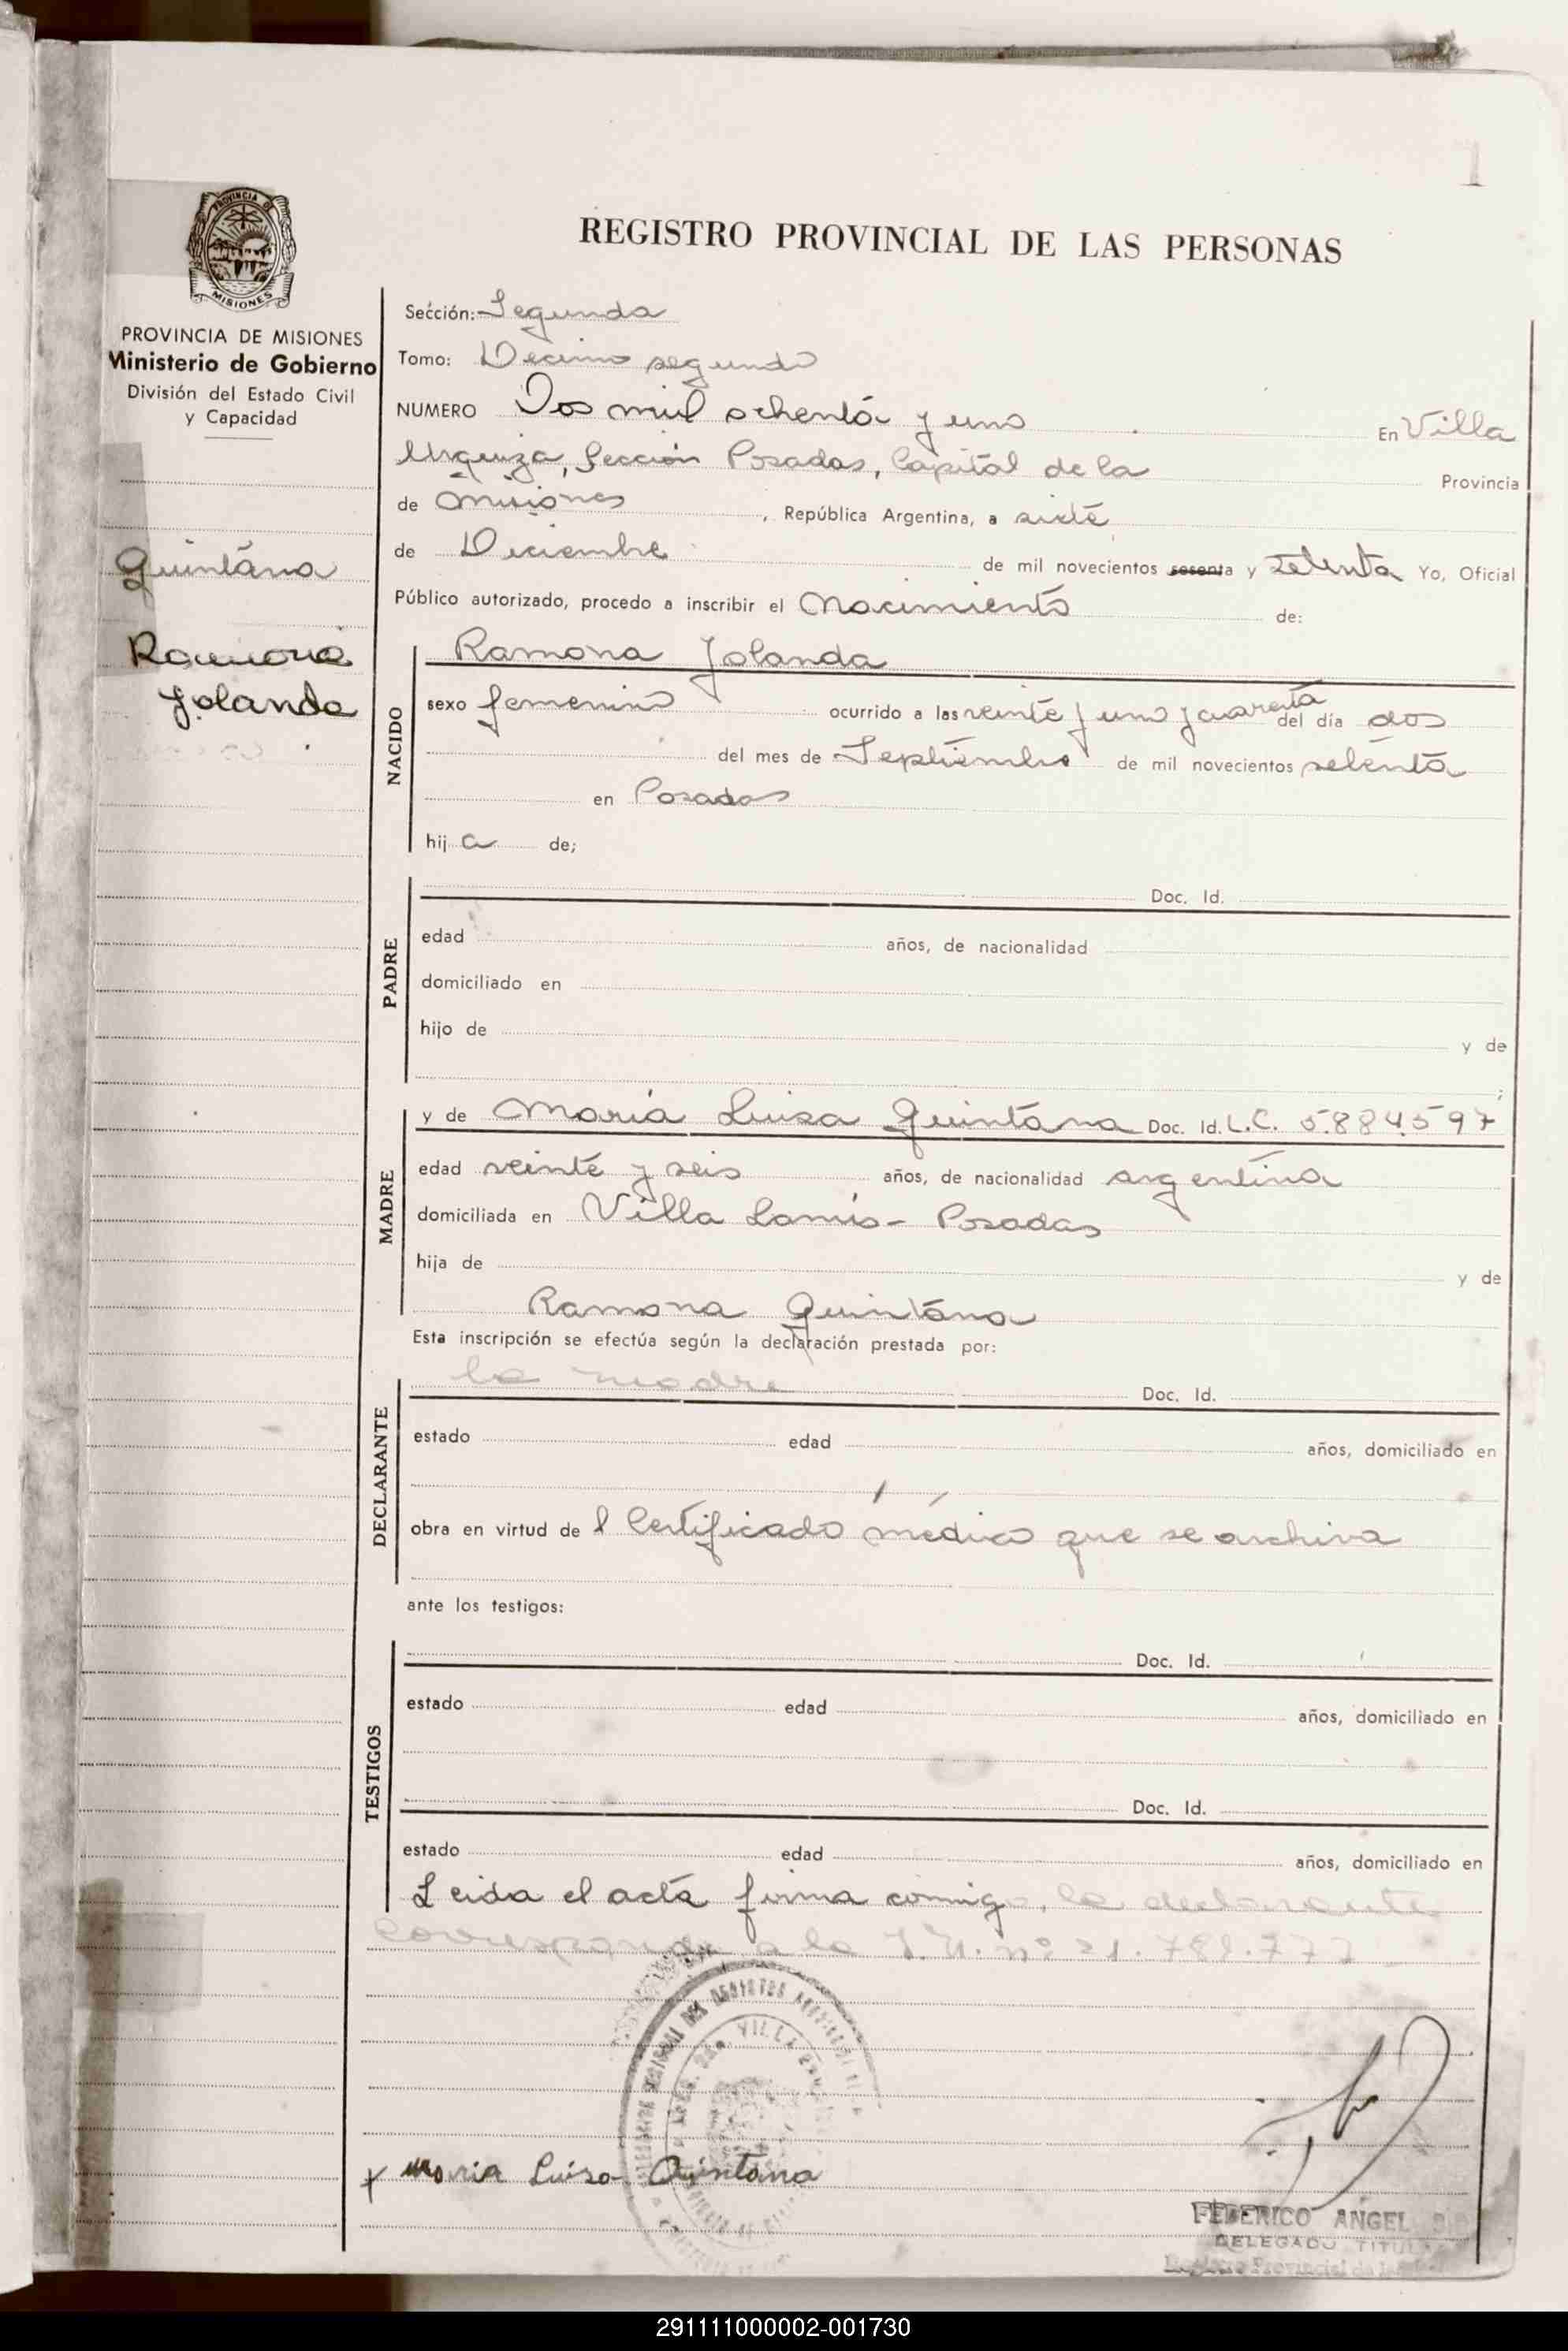 1
PROVINCIA DE
MISIONES
PROVINCIA DE MISIONES
Ministerio de Gobierno
División del Estado Civil
y Capacidad
Quintana
Ramona
Yolanda
REGISTRO PROVINCIAL DE LAS PERSONAS
Sección: Segunda
Tomo: Decimo segundo
NUMERO Dos mil ochenta y uno En Villa
Urquiza, Sección Posadas, Capital de la Provincia
de Misiones, República Argentina, a siete
de Diciembre de mil novecientos sesenta y setenta Yo, Oficial
Público autorizado, procedo a inscribir el Nacimiento de:
NACIDO
Ramona Yolanda
sexo femenino ocurrido a las veinte y uno y cuarenta del día dos
del mes de Septiembre de mil novecientos setenta
en Posadas
hija de;
PADRE
Doc. Id.
edad años, de nacionalidad
domiciliado en
hijo de y de
;
MADRE
y de Maria Luisa Quintana Doc. Id. L.C. 5.884.597
edad veinte y seis años, de nacionalidad argentina
domiciliada en Villa Lanús - Posadas
hija de y de
Ramona Quintana
Esta inscripción se efectúa según la declaración prestada por:
DECLARANTE
la madre Doc. Id.
estado edad años, domiciliado en
obra en virtud del Certificado médico que se archiva
ante los testigos:
TESTIGOS
Doc. Id.
estado edad años, domiciliado en
Doc. Id.
estado edad años, domiciliado en
Leida el acta firma comigo, la declarante
corresponde a la nº 21.789.777
VILLA
x Maria Luisa Quintana
FEDERICO ANGEL
DELEGADO TITULAR
Registro Provincial de las
291111000002-001730